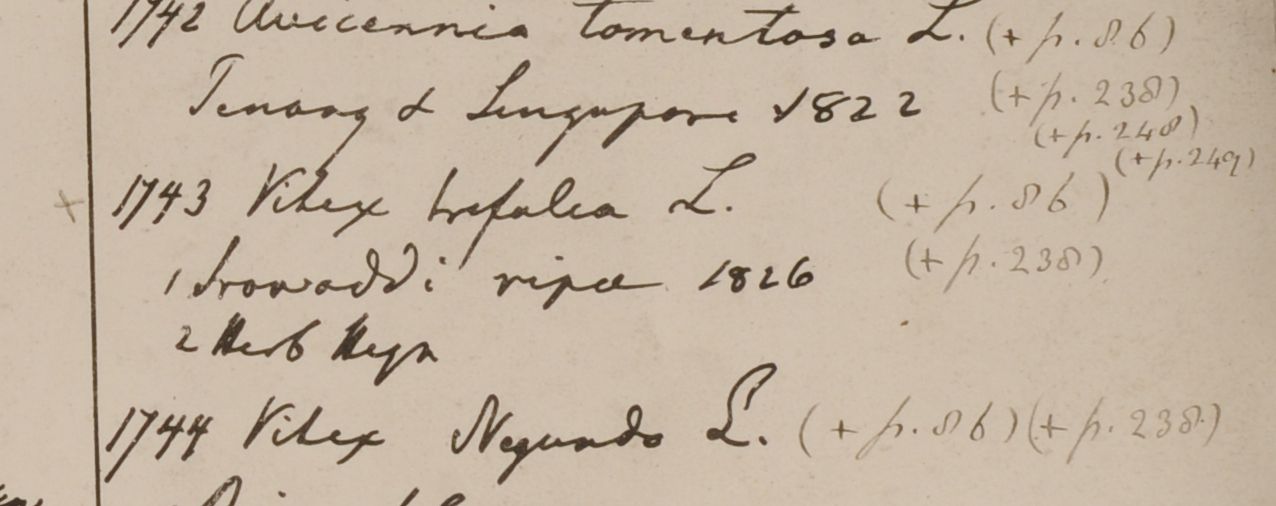 1742 Avicennia tomentosa L. (+ p. 86)
Penang & Singapore 1822 (+ p. 238)
(+ p. 248)
(+ p. 249)
1743 Vitex trifolia L. (+ p. 86)
1 Irowaddi ripa 1826 (+ p. 238)
2 Herb Heyn
1744 Vitex Negundo L. (+ p. 86) (+ p. 238)